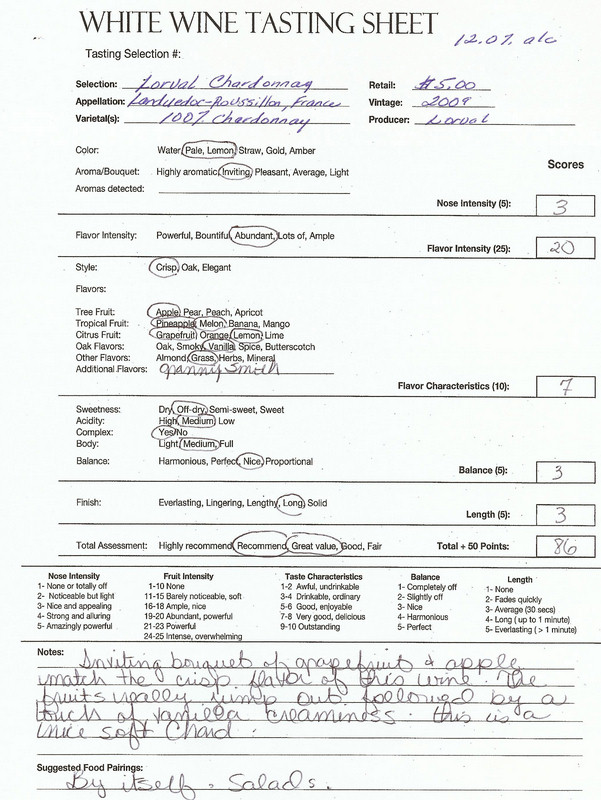 WHITE WINE TASTING SHEET
12.0% alc
Tasting Selection #:
Selection: Lorval Chardonnay Retail: $5.00
Appellation: Languedoc-Roussillon, France Vintage: 2009
Varietal(s): 100% Chardonnay Producer: Lorval
Color: Water, Pale, Lemon, Straw, Gold, Amber
Scores
Aroma/Bouquet: Highly aromatic, Inviting, Pleasant, Average, Light
Aromas detected:
Nose Intensity (5): 3
Flavor Intensity: Powerful, Bountiful, Abundant, Lots of, Ample
Flavor Intensity (25): 20
Style: Crisp, Oak, Elegant
Flavors:
Tree Fruit: Apple, Pear, Peach, Apricot
Tropical Fruit: Pineapple, Melon, Banana, Mango
Citrus Fruit: Grapefruit, Orange, Lemon, Lime
Oak Flavors: Oak, Smoky, Vanilla, Spice, Butterscotch
Other Flavors: Almond, Grass, Herbs, Mineral
Additional Flavors: granny smith
Flavor Characteristics (10): 7
Sweetness: Dry, Off-dry, Semi-sweet, Sweet
Acidity: High, Medium, Low
Complex: Yes/No
Body: Light, Medium, Full
Balance: Harmonious, Perfect, Nice, Proportional
Balance (5): 3
Finish: Everlasting, Lingering, Lengthy, Long, Solid
Length (5): 3
Total Assessment: Highly recommend, Recommend, Great value, Good, Fair
Total + 50 Points: 86
Nose Intensity
1- None or totally off
2- Noticeable but light
3- Nice and appealing
4- Strong and alluring
5- Amazingly powerful
Fruit Intensity
1-10 None
11-15 Barely noticeable, soft
16-18 Ample, nice
19-20 Abundant, powerful
21-23 Powerful
24-25 Intense, overwhelming
Taste Characteristics
1-2 Awful, undrinkable
3-4 Drinkable, ordinary
5-6 Good, enjoyable
7-8 Very good, delicious
9-10 Outstanding
Balance
1- Completely off
2- Slightly off
3- Nice
4- Harmonious
5- Perfect
Length
1- None
2- Fades quickly
3- Average (30 secs)
4- Long ( up to 1 minute)
5- Everlasting ( > 1 minute)
Notes:
Inviting bouquet of grapefruit & apple
match the crisp flavor of this wine. The
fruits really jump out followed by a
touch of vanilla creaminess. this is a
nice soft Chard.
Suggested Food Pairings:
By itself, Salads.